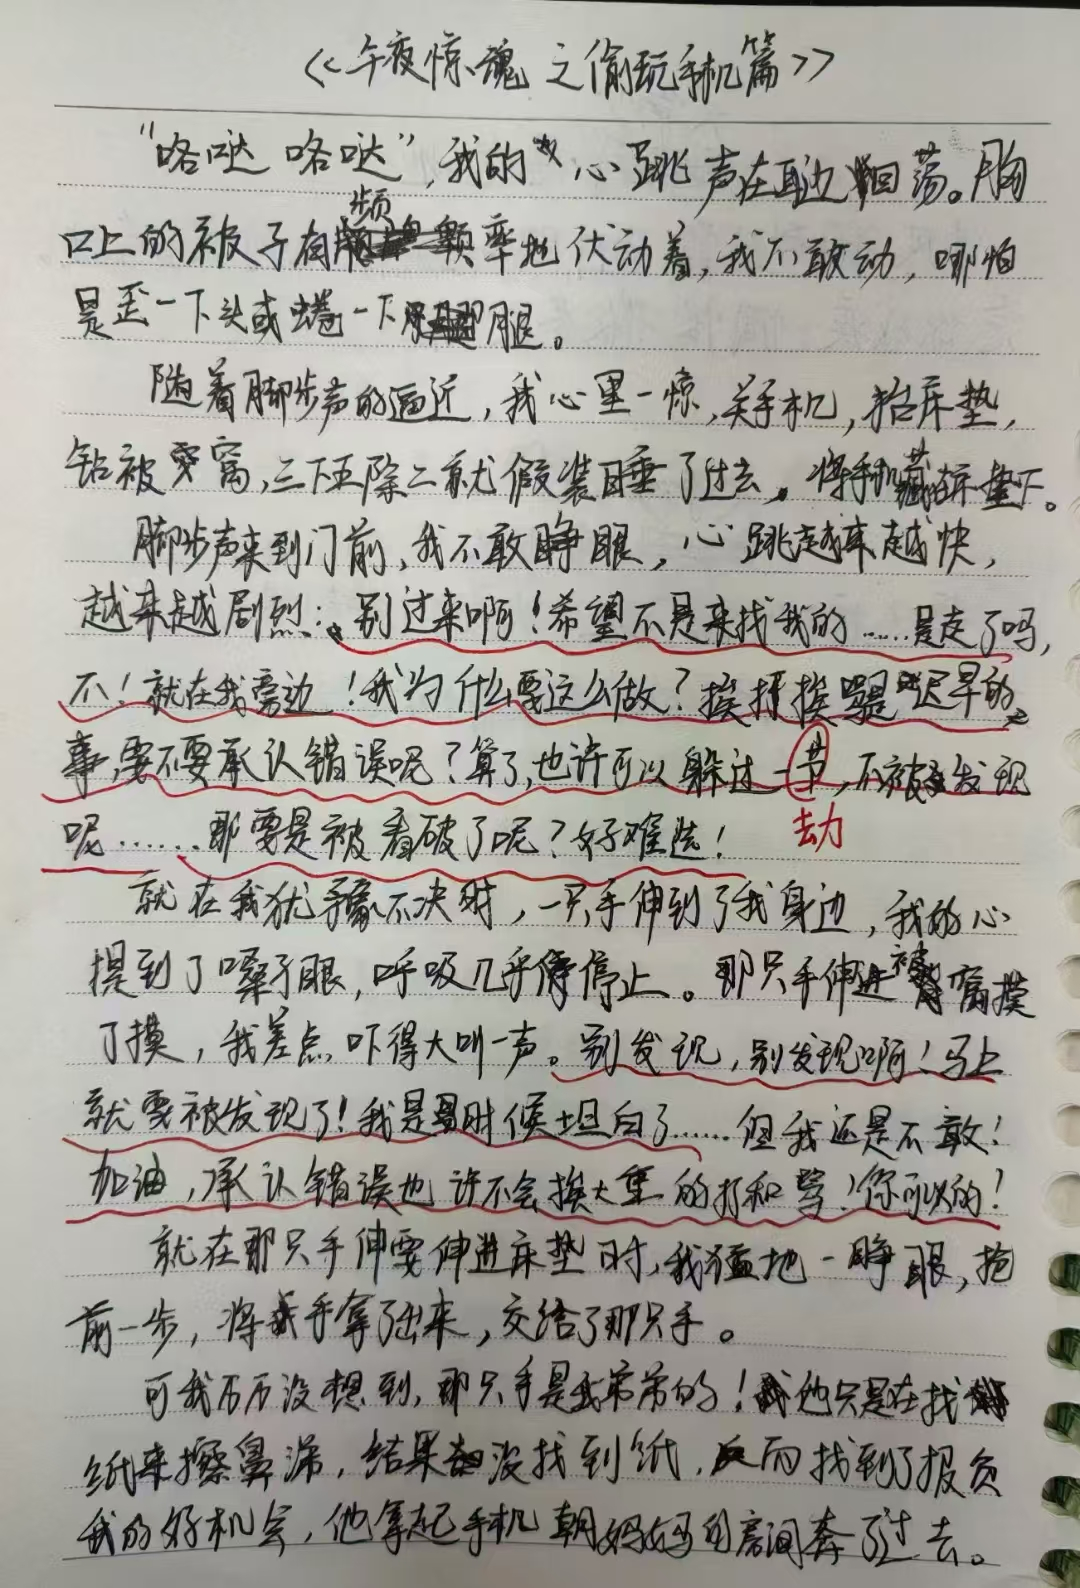 《午夜惊魂 之偷玩手机篇》
“咯哒 咯哒”,我的心跳声在耳边回荡。胸
频
口上的被子有率地伏动着,我不敢动,哪怕
是歪一下头或蜷一下腿。
随着脚步声的逼近,我心里一惊,关手机,抬床垫,
钻被窝,三下五除二就假装睡了过去。将手机藏在床垫下。
脚步声来到门前,我不敢睁眼,心跳越来越快,
越来越剧烈:别过来啊!希望不是来找我的……是走了吗,
不!就在我旁边!我为什么要这么做?挨打挨骂是迟早的
事,要不要承认错误呢?算了,也许可以躲过一节,不被发现
劫
呢……那要是被看破了呢?好难选!
就在我犹豫不决时,一只手伸到了我身边,我的心
提到了嗓子眼,呼吸几乎停止。那只手伸进被窝摸
了摸,我差点吓得大叫一声。别发现,别发现啊!马上
就要被发现了!我是时候坦白了……但我还是不敢!
加油,承认错误也许不会挨大量的打和骂!你可以的!
就在那只手伸要伸进床垫时,我猛地一睁眼,抢
前一步,将手拿了出来,交给了那只手。
可我万万没想到,那只手是我弟弟的!他只是在找
纸来擦鼻涕,结果没找到纸,反而找到了报负
我的好机会,他拿起手机朝妈妈的房间奔了过去。